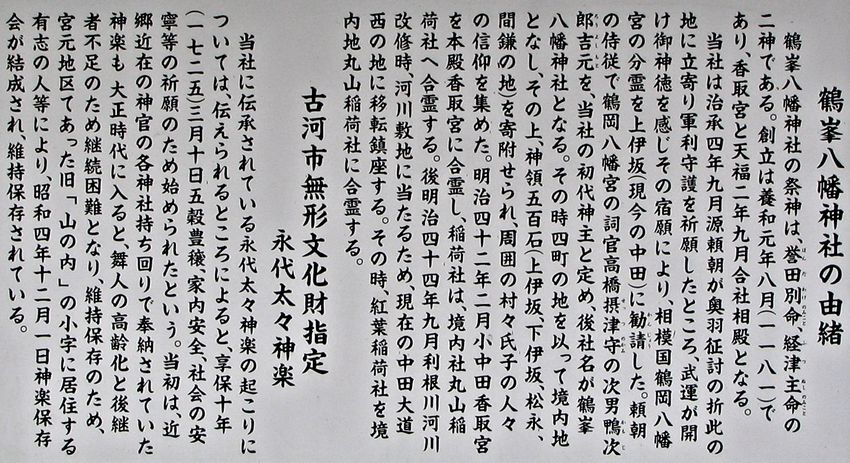 鶴峯八幡神社の由緒
鶴峯八幡神社の祭神は、誉田別命、経津主命の
二神である。創立は養和元年八月(一一八一)で
あり、香取宮と天福二年九月合社相殿となる。
当社は治承四年九月源頼朝が奥羽征討の折此の
地に立寄り軍利守護を祈願したところ、武運が開
け御神徳を感じその宿願により、相模国鶴岡八幡
宮の分霊を上伊坂(現今の中田)に勧請した。頼朝
の侍従で鶴岡八幡宮の詞官高橋摂津守の次男鴨次
郎吉元を、当社の初代神主と定め、後社名が鶴峯
八幡神社となる。その時四町の地を以って境内地
となし、その上、神領五百石(上伊坂、下伊坂、松永、
間鎌の地)を寄附せられ、周囲の村々氏子の人々
の信仰を集めた。明治四十二年二月小中田香取宮
を本殿香取宮に合霊し、稲荷社は、境内社丸山稲
荷社へ合霊する。後明治四十四年九月利根川河川
改修時、河川敷地に当たるため、現在の中田大道
西の地に移転鎮座する。その時、紅葉稲荷社を境
内地丸山稲荷社に合霊する。
古河市無形文化財指定
永代太々神楽
当社に伝承されている永代太々神楽の起こりに
ついては、伝えられるところによると、享保十年
(一七二五)三月十日五穀豊穣、家内安全、社会の安
寧等の祈願のため始められたという。当初は、近
郷近在の神官の各神社持ち回りで奉納されていた
神楽も 大正時代に入ると、舞人の高齢化と後継
者不足のため継続困難となり、維持保存のため、
宮元地区てあった旧「山の内」の小字に居住する
有志の人等により、昭和四年十二月一日神楽保存
会が結成され、維持保存されている。